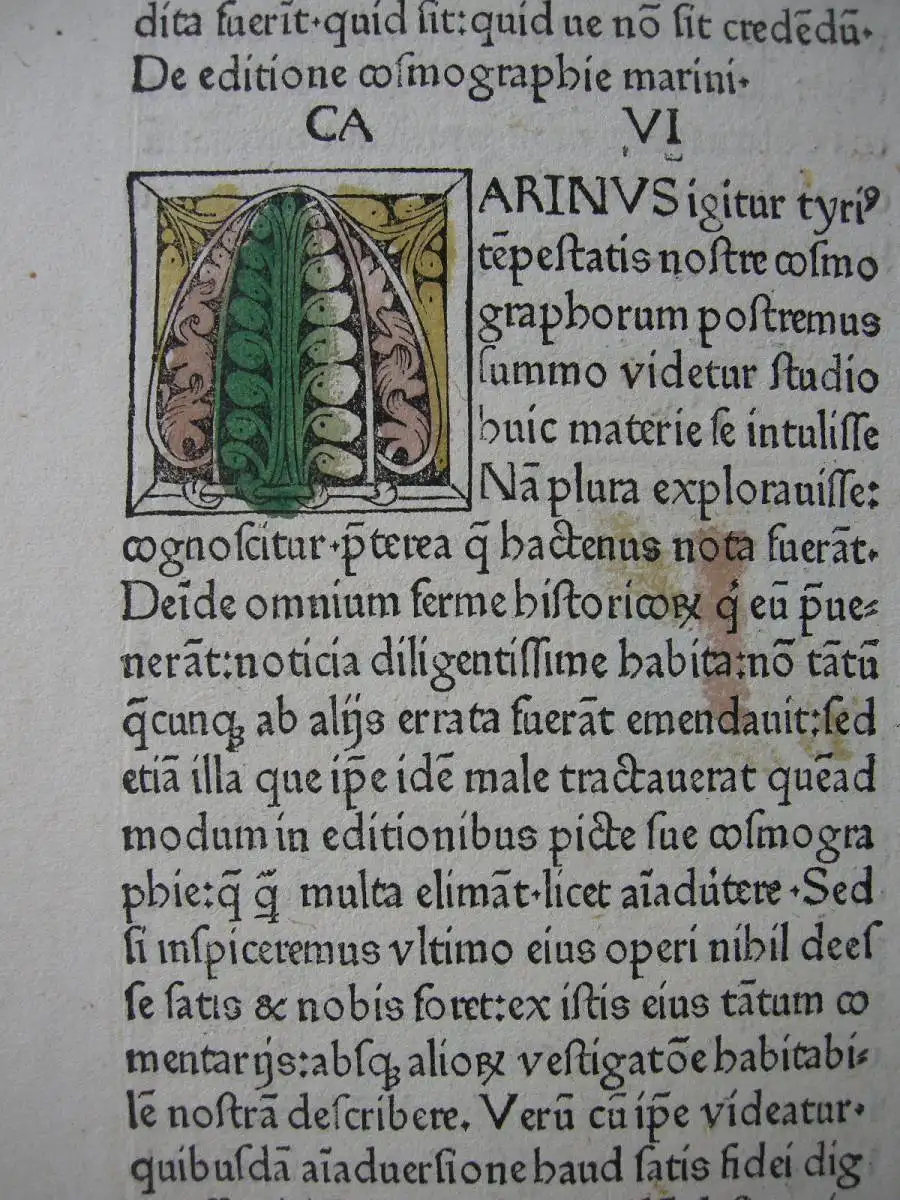 dita fuerīt·quid ſit:quid ue nō ſit credēdū·
De editione coſmographie marini·
CA VI
MARINVS igitur tyriꝰ
tēpeſtatis noſtre coſmo
graphorum poſtremus
ſummo videtur ſtudio
huic materie ſe intuliſſe
Nā plura explorauiſſe:
cognoſcitur·p̄terea q̄ hactenus nota fuerāt·
Deīde omnium ferme hiſtoricoꝝ q̇ eū p̄ue⸗
nerāt:noticia diligentiſſime habita:nō tātū
q̄cunqꝫ ab alijs errata fuerāt emendauit:ſed
etiā illa que ip̄e idē male tractauerat quēad
modum in editionibus picte ſue coſmogra
phie:q̄ q̄ multa elimāt·licet aīadútere ·Sed
ſi inſpiceremus vltimo eius operi nihil deeſ
ſe ſatis & nobis foret:ex iſtis eius tātum co
mentarijs:abſqꝫ alioꝝ veſtigatōe habitabi⸗
lē noſtrā deſcribere. Verū cū ip̄e videatur·
quibuſdā aīaduerſione haud ſatis fidei dig